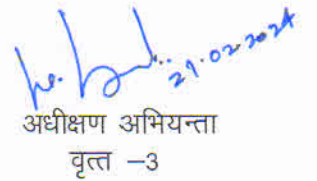 21.02.2024
अधीक्षण अभियन्ता
वृत्त –3